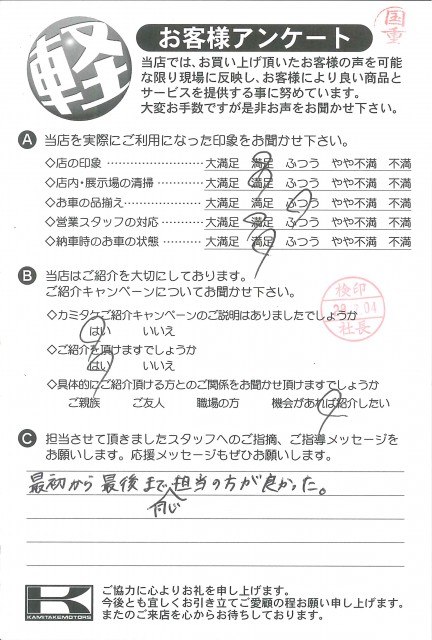 国重
軽
お客様アンケート
当店では、お買い上げ頂いたお客様の声を可能
な限り現場に反映し、お客様により良い商品と
サービスを提供する事に努めています。
大変お手数ですが是非お声をお聞かせ下さい。
A 当店を実際にご利用になった印象をお聞かせ下さい。
◇店の印象 ………………… 大満足 満足 ふつう やや不満 不満
◇店内・展示場の清掃 ………… 大満足 満足 ふつう やや不満 不満
◇お車の品揃え ……………… 大満足 満足 ふつう やや不満 不満
◇営業スタッフの対応 ………… 大満足 満足 ふつう やや不満 不満
◇納車時のお車の状態 ………… 大満足 満足 ふつう やや不満 不満
B 当店はご紹介を大切にしてあります。
ご紹介キャンペーンについてお聞かせ下さい。
検印
社長
◇カミタケご紹介キャンペーンのご説明はありましたでしょうか
はい いいえ
◇ご紹介を頂けますでしょうか
はい いいえ
◇具体的にご紹介頂ける方とのご関係をお聞かせ頂けますでしょうか
ご親族 ご友人 職場の方 機会があれば紹介したい
C 担当させて頂きましたスタッフへのご指摘、ご指導メッセージを
お願いします。応援メッセージもぜひお願いします。
最初から最後まで担当の方が良かった。
K
KAMITAKEMOTORS
ご協力に心よりお礼を申し上げます。
今後とも宜しくお引き立てご愛顧の程お願い申し上げます。
またのご来店を心からお待ちしております。